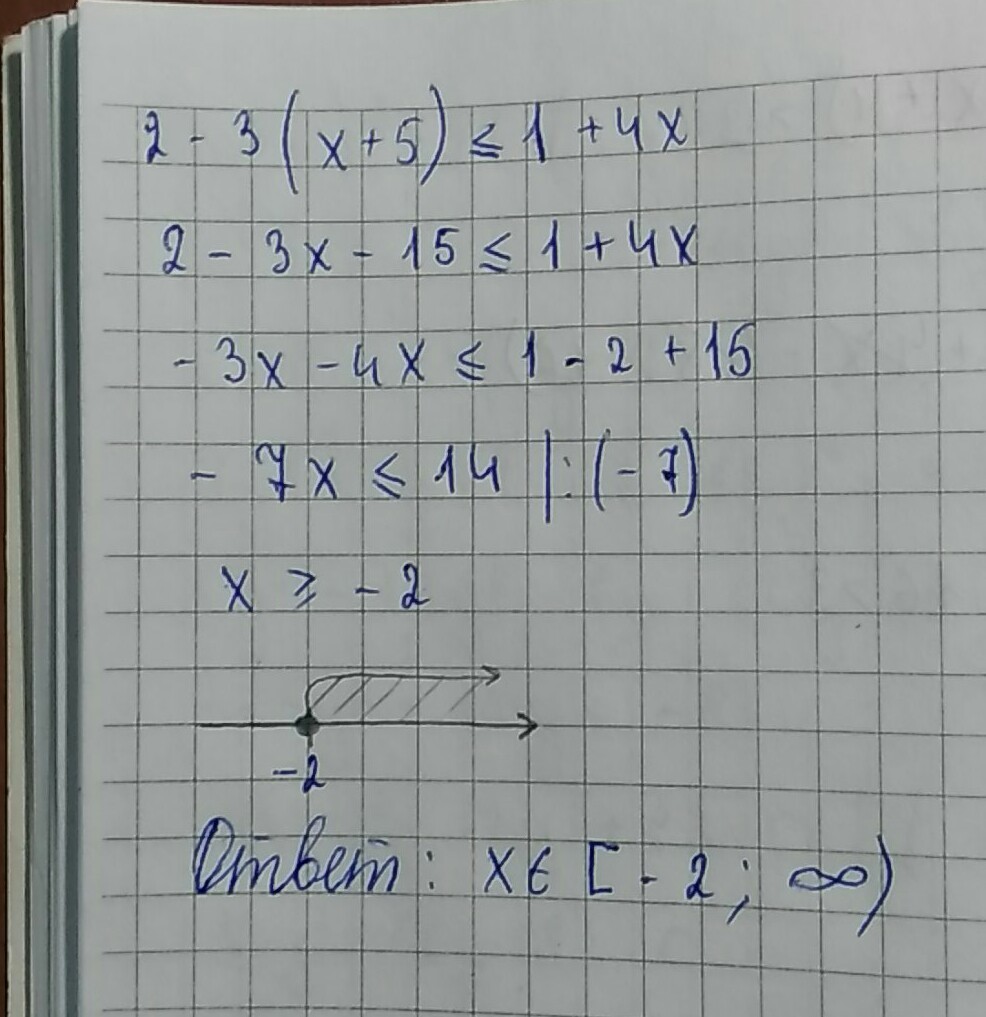 2 - 3(x+5) ≤ 1 + 4x
2 - 3x - 15 ≤ 1 + 4x
- 3x - 4x ≤ 1 - 2 + 15
- 7x ≤ 14 |:(-7)
x ≥ - 2
-2
Ответ: x ∈ [- 2; ∞)